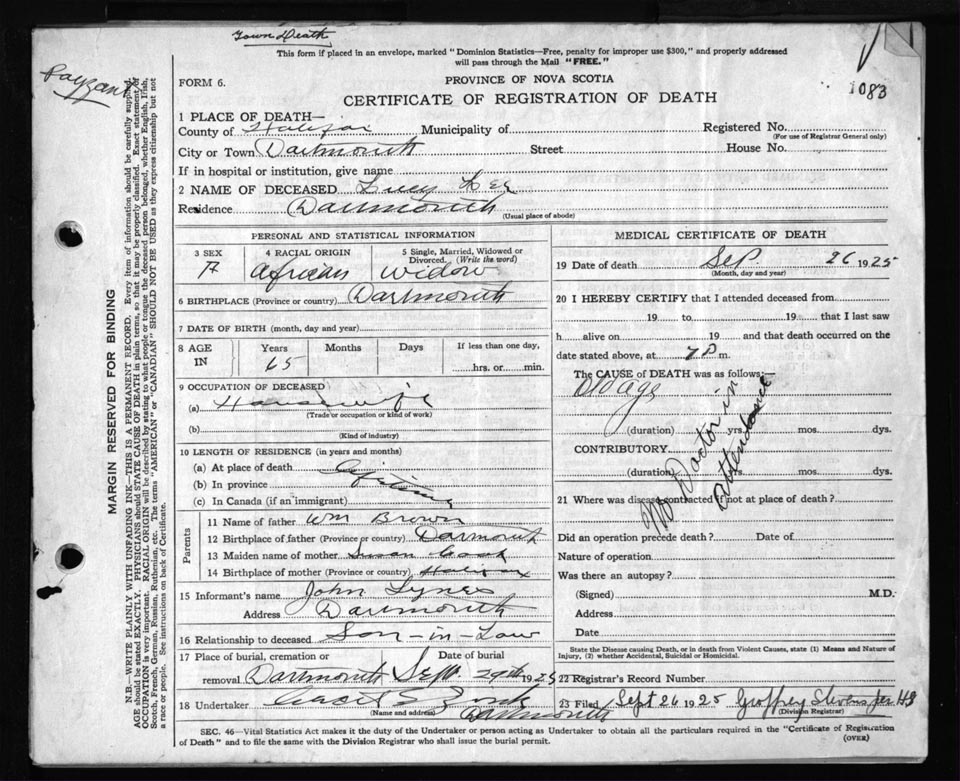 Town Death
This form if placed in an envelope, marked "Dominion Statistics–Free, penalty for improper use $300," and properly addressed
will pass through the Mail "FREE."
Payzant
FORM 6.
PROVINCE OF NOVA SCOTIA
1083
CERTIFICATE OF REGISTRATION OF DEATH
1 PLACE OF DEATH—
County of Halifax Municipality of Registered No.
(For use of Registrar General only)
City or Town Dartmouth Street House No.
If in hospital or institution, give name
2 NAME OF DECEASED Lucy Lee
Residence Dartmouth
(Usual place of abode)
PERSONAL AND STATISTICAL INFORMATION
3 SEX 4 RACIAL ORIGIN 5 Single, Married, Widowed or
Divorced. (Write the word)
African Widow
6 BIRTHPLACE (Province or country) Dartmouth
7 DATE OF BIRTH (month, day and year)
8 AGE IN Years Months Days If less than one day,
65 hrs. or min.
9 OCCUPATION OF DECEASED
(a) Housewife
(Trade or occupation or kind of work)
(b)
(Kind of industry)
10 LENGTH OF RESIDENCE (in years and months)
(a) At place of death
(b) In province Lifetime
(c) In Canada (if an immigrant)
Parents
11 Name of father Wm Brown
12 Birthplace of father (Province or country) Dartmouth
13 Maiden name of mother Susan
14 Birthplace of mother (Province or country) Halifax
15 Informant's name John Tynes
Address Dartmouth
16 Relationship to deceased Son-in-Law
17 Place of burial, cremation or Date of burial
removal Dartmouth Sept. 29th 1925
18 Undertaker
(Name and address) Dartmouth
MEDICAL CERTIFICATE OF DEATH
19 Date of death Sep. 26 1925
(Month, day and year)
20 I HEREBY CERTIFY that I attended deceased from
19 to 19 that I last saw
h alive on 19 and that death occurred on the
date stated above, at 7 P m.
The CAUSE of DEATH was as follows:—
Old age
(duration) yrs. mos. dys.
CONTRIBUTORY
(duration) yrs. mos. dys.
No Doctor in
Attendance
21 Where was disease contracted if not at place of death?
Did an operation precede death? Date of
Nature of operation
Was there an autopsy?
(Signed) M.D.
Address
Date
State the Disease causing Death, or in death from Violent Causes, state (1) Means and Nature of
Injury, (2) whether Accidental, Suicidal or Homicidal.
22 Registrar's Record Number
23 Filed Sept 26 1925 Geoffrey Stevens
(Division Registrar)
SEC. 46—Vital Statistics Act makes it the duty of the Undertaker or person acting as Undertaker to obtain all the particulars required in the "Certificate of Registration
of Death" and to file the same with the Division Registrar who shall issue the burial permit. (OVER)
MARGIN RESERVED FOR BINDING
N.B.—WRITE PLAINLY WITH UNFADING INK—THIS IS A PERMANENT RECORD. Every item of information should be carefully supplied.
AGE should be stated EXACTLY. PHYSICIANS should STATE CAUSE OF DEATH in plain terms, so that it may be properly classified. Exact statement of
OCCUPATION is very important. RACIAL ORIGIN will be described by stating to what people or tongue the deceased person belonged, whether English, Irish,
Scotch, French, German, Russian, Ruthenian, etc. The terms "AMERICAN" or "CANADIAN" SHOULD NOT BE USED as they express citizenship but not
a race or people. See instructions on back of Certificate.